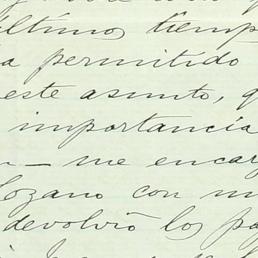 último tiemp
a permitido
este asunto, q
importancia
— me encar
Lozano con m
devolvió los pa